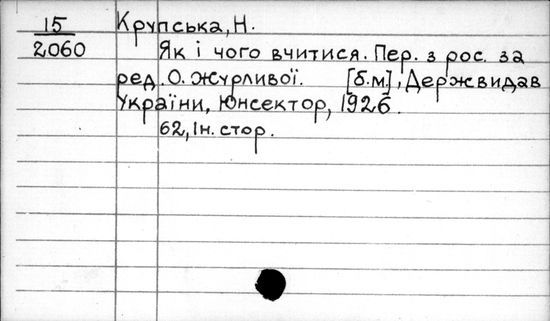 15
2060
Крупська, Н.
Як і чого вчитися. Пер. з рос. за
ред. О. Журливої. [б.м], Держвидав
України, Юнсектор, 1926.
62, Ін. стор.